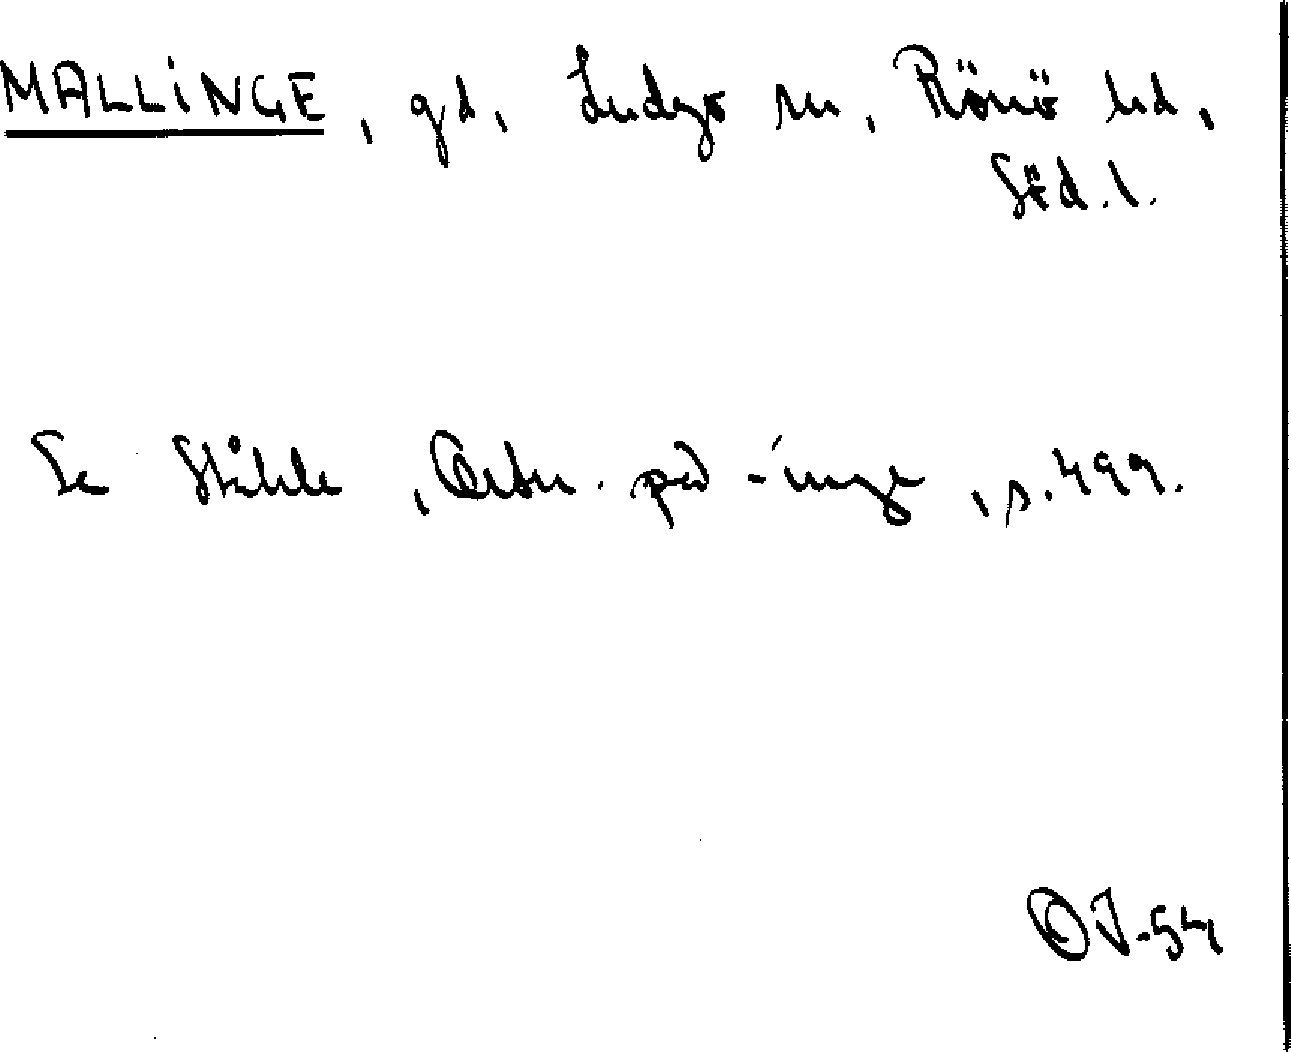 MALLINGE, gd, Ludgo sn, Rönö hd,
Söd. l.
Se Ståhle, Ortn. på -inge, s. 499.
OJ-54